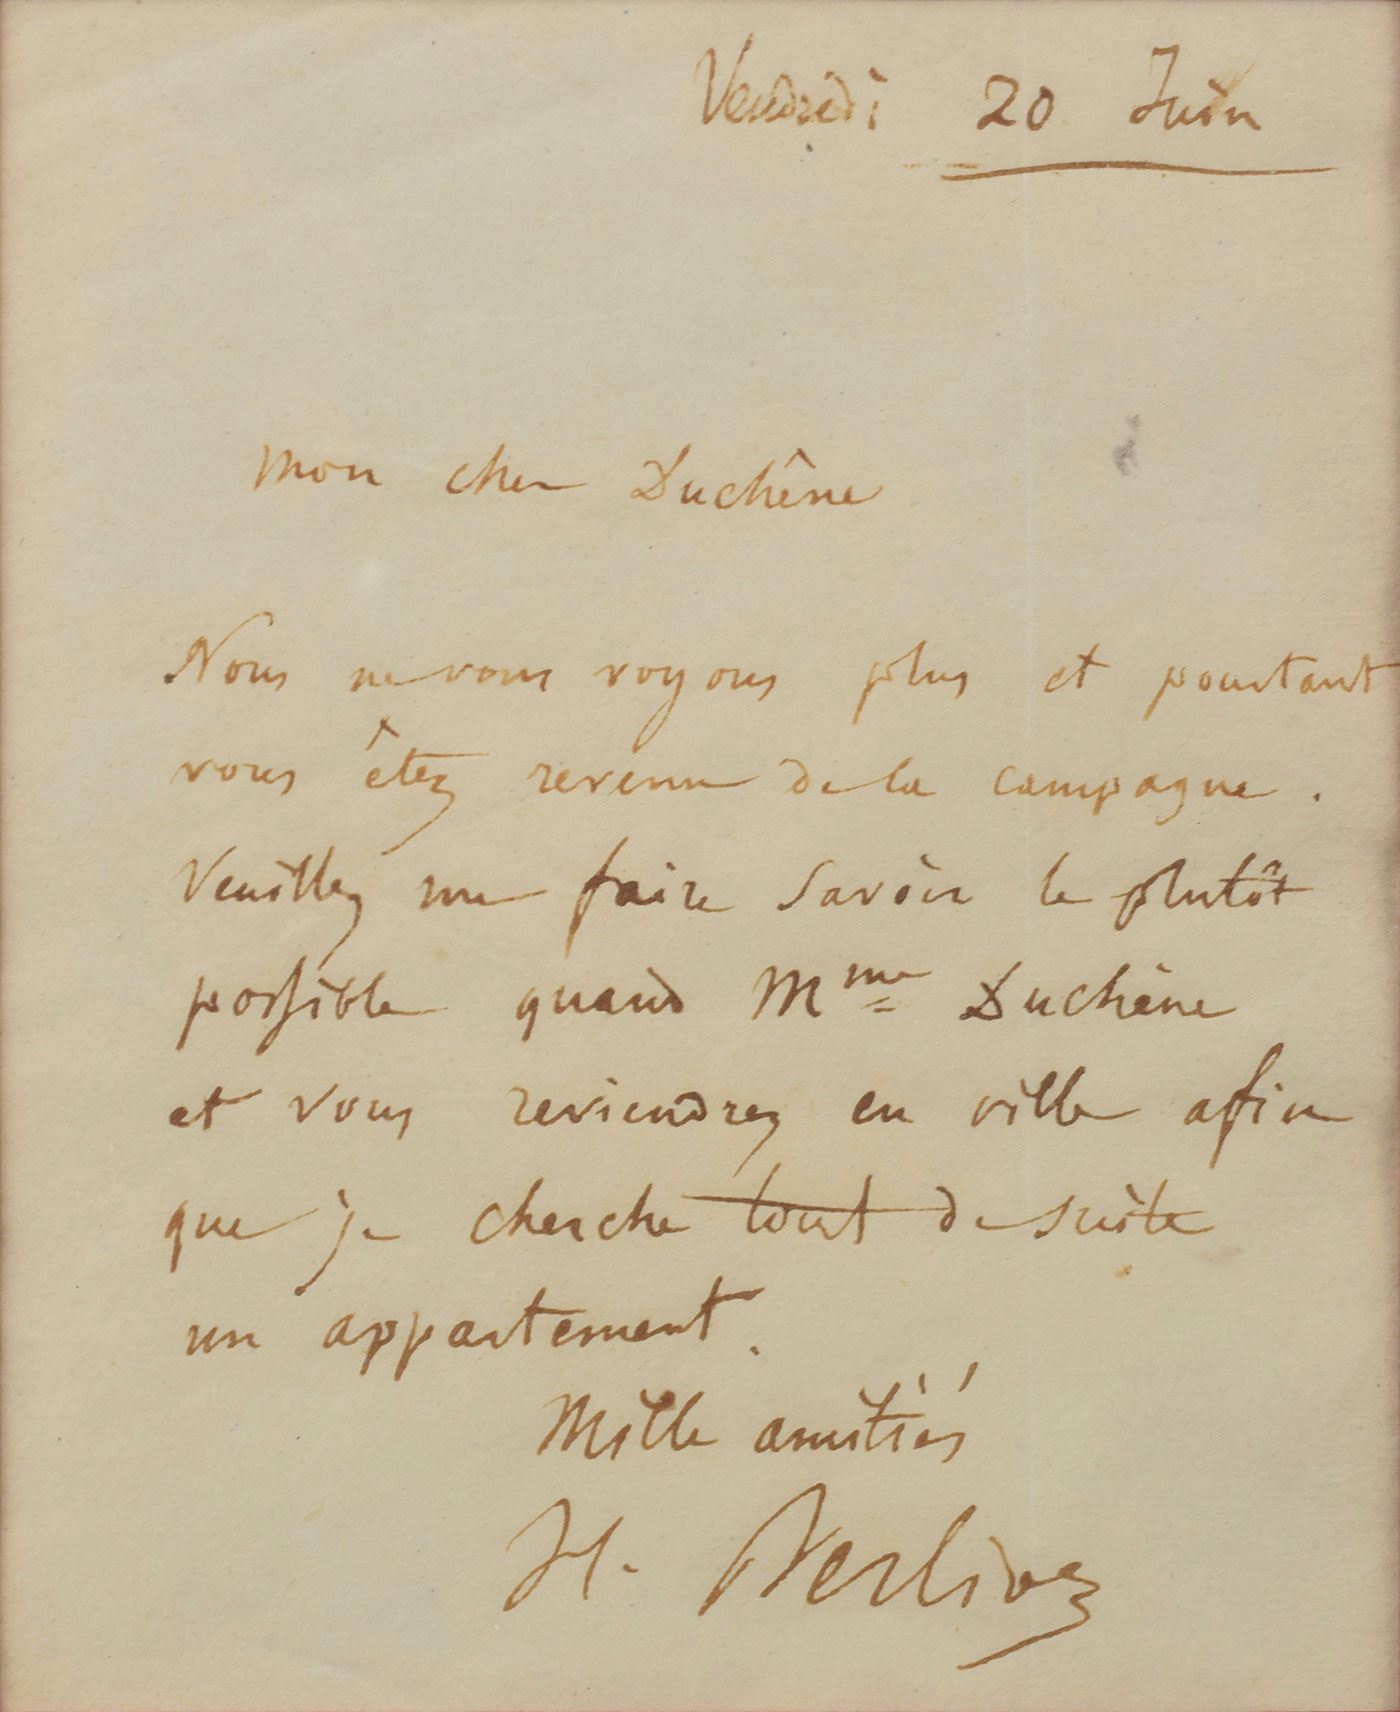 Vendredi 20 Juin
Mon cher Duchêne
Nous ne vous voyons plus et pourtant
vous êtez revenu de la campagne.
Veuillez me faire savoir le plutôt
possible quand Mme Duchêne
et vous reviendrez en ville afin
que je cherche tout de suite
un appartement.
Mille amitiés
H. Berlioz